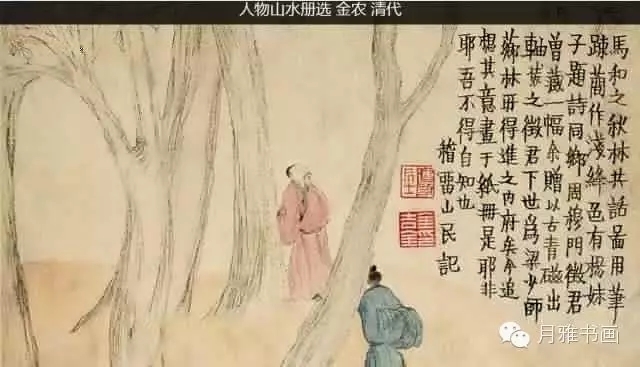 人物山水册选 金农 清代
馬和之秋林共話啚用筆
踈蕑作淺絳色有楊妹
子題詩同鄉周穆門徵君
曾藏一幅余贈以古青磁出
軸答之徵君下世為梁少師
薌林所得進之内府矣今追
想其意畫于紙冊是耶非
耶吾不得自知也
稽畱山民記
月雅书画